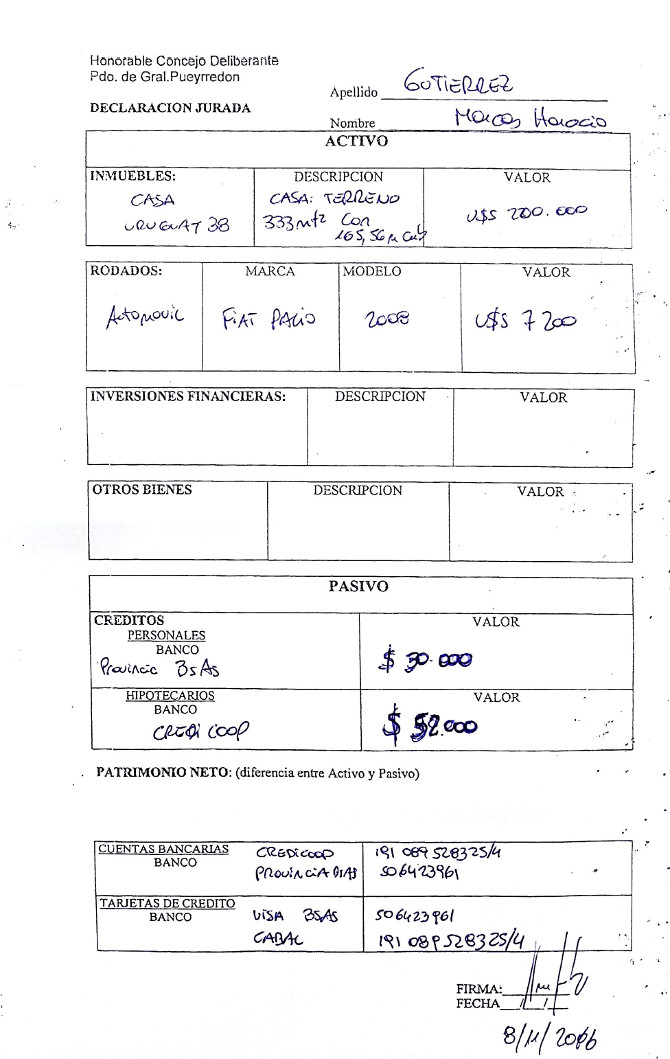 Honorable Concejo Deliberante
Pdo. de Gral.Pueyrredon
Apellido GUTIERREZ
DECLARACION JURADA
Nombre Marcos Horacio
ACTIVO
INMUEBLES: DESCRIPCION VALOR
CASA CASA: TERRENO U$S 200.000
URUGUAY 38 333 mt² con
165,56 m
RODADOS: MARCA MODELO VALOR
Automovil FIAT PALIO 2008 U$S 7200
INVERSIONES FINANCIERAS: DESCRIPCION VALOR
OTROS BIENES DESCRIPCION VALOR
PASIVO
CREDITOS VALOR
PERSONALES
BANCO
Provincia Bs As $ 30.000
HIPOTECARIOS VALOR
BANCO
CREDICOOP $ 52.000
PATRIMONIO NETO: (diferencia entre Activo y Pasivo)
CUENTAS BANCARIAS CREDICOOP 191 089 528325/4
BANCO PROVINCIA 506423961
TARJETAS DE CREDITO
BANCO VISA BSAS 506423961
CABAL 191 089 528325/4
FIRMA:
FECHA / /
8/11/2016